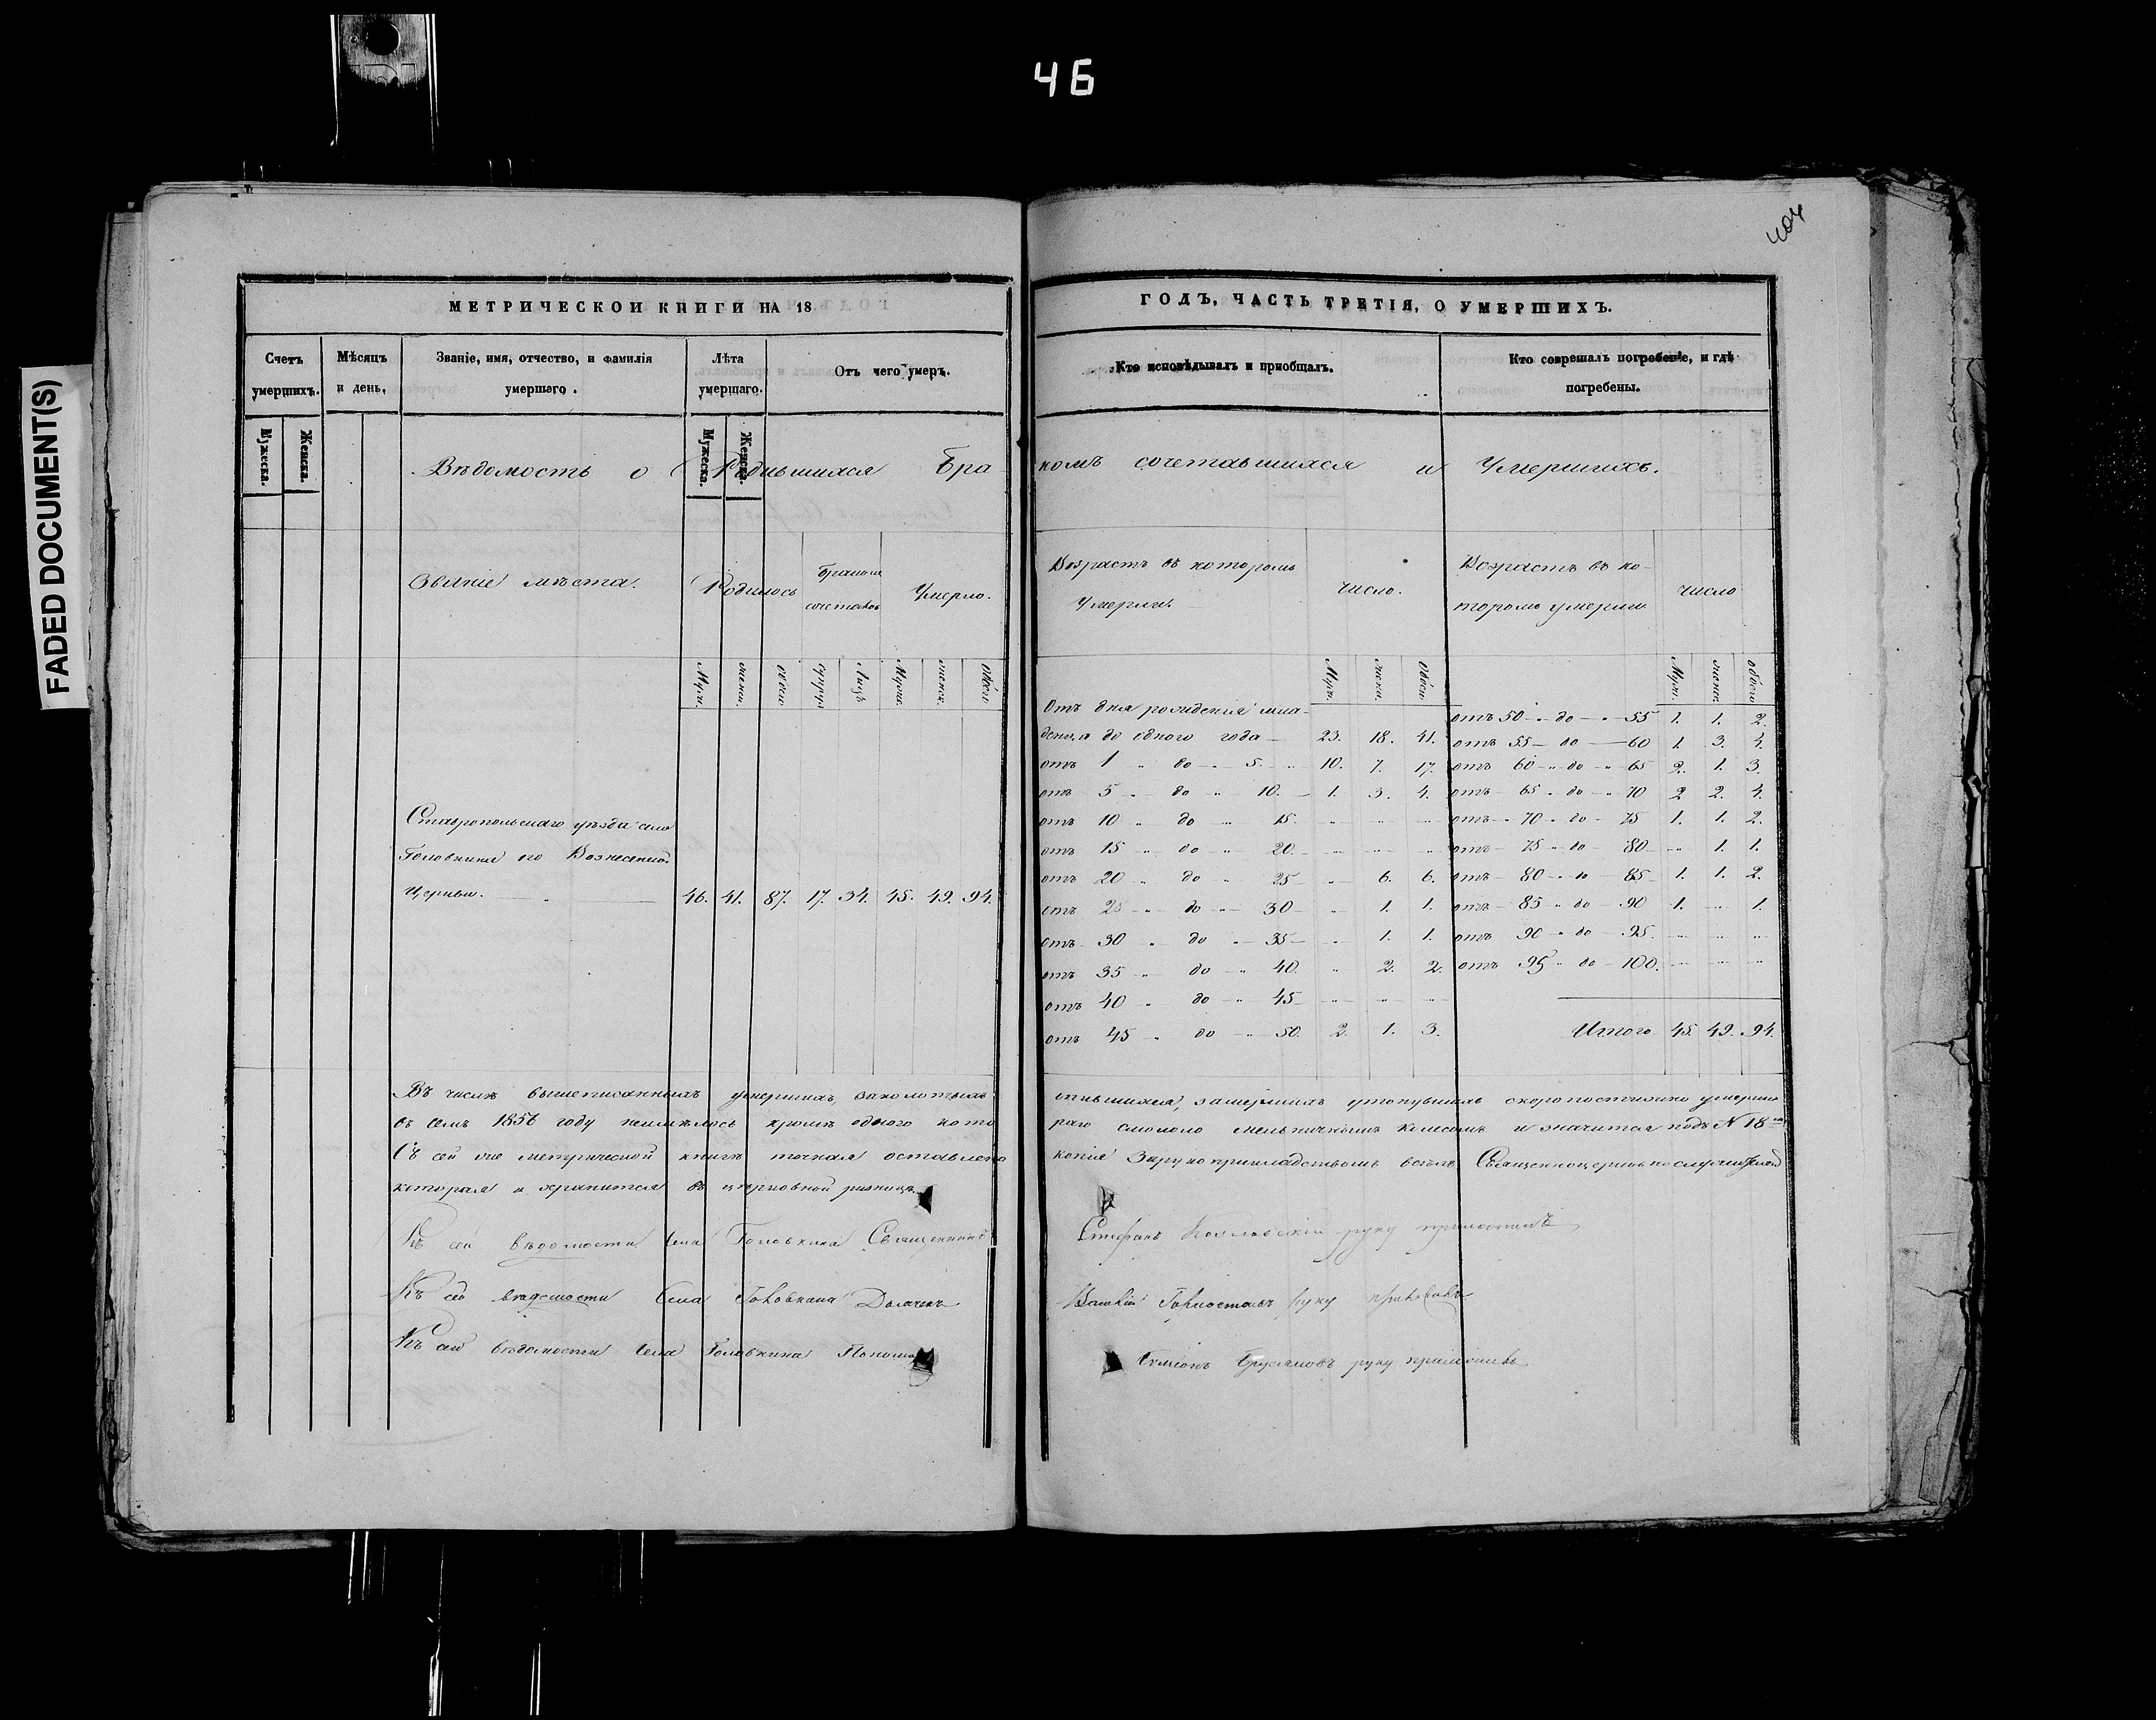 46
404
FADED DOCUMENT(S)
МЕТРИЧЕСКОЙ КНИГИ НА 18
Счетъ умершихъ.
Мѣсяцъ и день.
Званіе, имя, отчество, и фамилія умершаго.
Лѣта умершаго.
Отъ чего умеръ.
Мужеска.
Женска.
Мужеска.
Женска.
ГОДЪ, ЧАСТЬ ТРЕТІЯ, О УМЕРШИХЪ.
Кто исповѣдывалъ и пріобщалъ.
Кто совершалъ погребеніе, и гдѣ погребены.
Вѣдомость о Родившихся Бра
комъ сочетавшихся и Умершихъ.
Званіе мѣста.
Родилось
Умерло.
Возрастъ въ которомъ
Умерли.
число.
Возрастъ въ ко-
торомъ умерли
число
Отъ дня рожденія мла-
денца до одного года — 23. 18. 41.
отъ 1 до 5. 10. 7. 17.
отъ 5 до 10. 1. 3. 4.
отъ 10 до 15.
отъ 15 до 20.
отъ 20 до 25 6. 6.
отъ 25 до 30 1. 1.
отъ 30 до 35 1. 1.
отъ 35 до 40. 2. 2.
отъ 40 до 45
отъ 45 до 50. 2. 1. 3.
отъ 50 до 55 1. 1. 2.
отъ 55 до 60 1. 3. 4.
отъ 60 до 65 2. 1. 3.
отъ 65 до 70 2 2. 4.
отъ 70 до 75 1. 1. 2.
отъ 75 до 80 1. 1.
отъ 80 до 85 1. 1. 2.
отъ 85 до 90 1. 1.
отъ 90 до 95.
отъ 95 до 100.
Итого 45. 49. 94.
Ставропольскаго уѣзда села
Головкина его Вознесенской
Церкви. 46. 41. 87. 17. 34. 45. 49. 94.
Въ числѣ вышеписанныхъ умершихъ,
опившихся, замерзшихъ утонувшихъ скоропостижно
въ семъ 1856 году неимѣлось кромѣ одного кото
раго смололо мельничнымъ колесомъ и значится подъ N 18
Съ сей же метрической книги точная оставлена
копія рукоприкладствомъ всѣхъ
которая и хранится въ церковной ризницѣ
Къ сей вѣдомости села Головкина Священникъ
Стефанъ руку приложилъ
Къ сей вѣдомости Села Головкина
руку
Къ сей вѣдомости села Головкина
Симеонъ руку приложилъ